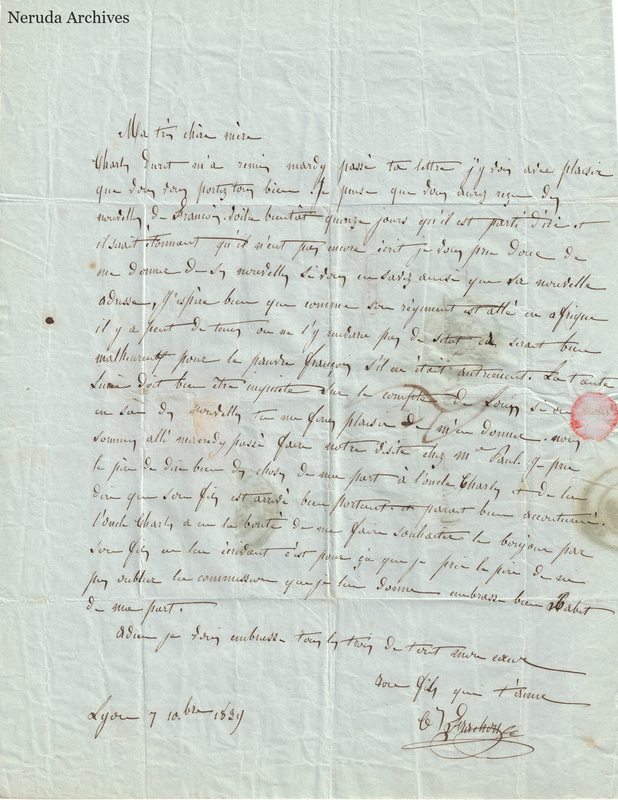 Neruda Archives
Ma très chère mère
Charly Duret m'a remis mardy passé ta lettre j'y vois avec plaisir
que vous vous portez tous bien. Je pense que vous aurez reçu des
nouvelles de François. Voilà bientôt quinze jours qu'il est parti d'ici et
il serait étonnant qu'il n'eut pas encore écrit je vous prie donc de
me donner de ses nouvelles si vous en savez ainsi que sa nouvelle
adresse, j'espère bien que comme son régiment est allé en afrique
il y a peut de tems on ne l'y enverra pas de sitot ce serait bien
malheureux pour le pauvre françois s'il en était autrement. La tante
doit bien être inquiète sur le compte de Louis si on
en sait des nouvelles tu me feras plaisir de m'en donner. nous
sommes allé mercredy passé faire notre visite chez Mme Paul. Je prie
le père de dire bien des choses de ma part à l'oncle Charly et de lui
dire que son fils est arrivé bien portant et parait bien accoutumé.
l'oncle Charly a eu la bonté de me faire souhaiter le bonjour par
son fils en lui écrivant c'est pour ça que je prie le père de ne
pas oublier la commission que je lui donne embrasse bien Babet
de ma part.
adieu je vous embrasse tous les trois de tout mon cœur
ton fils qui t'aime
Lyon 7 10.bre 1839